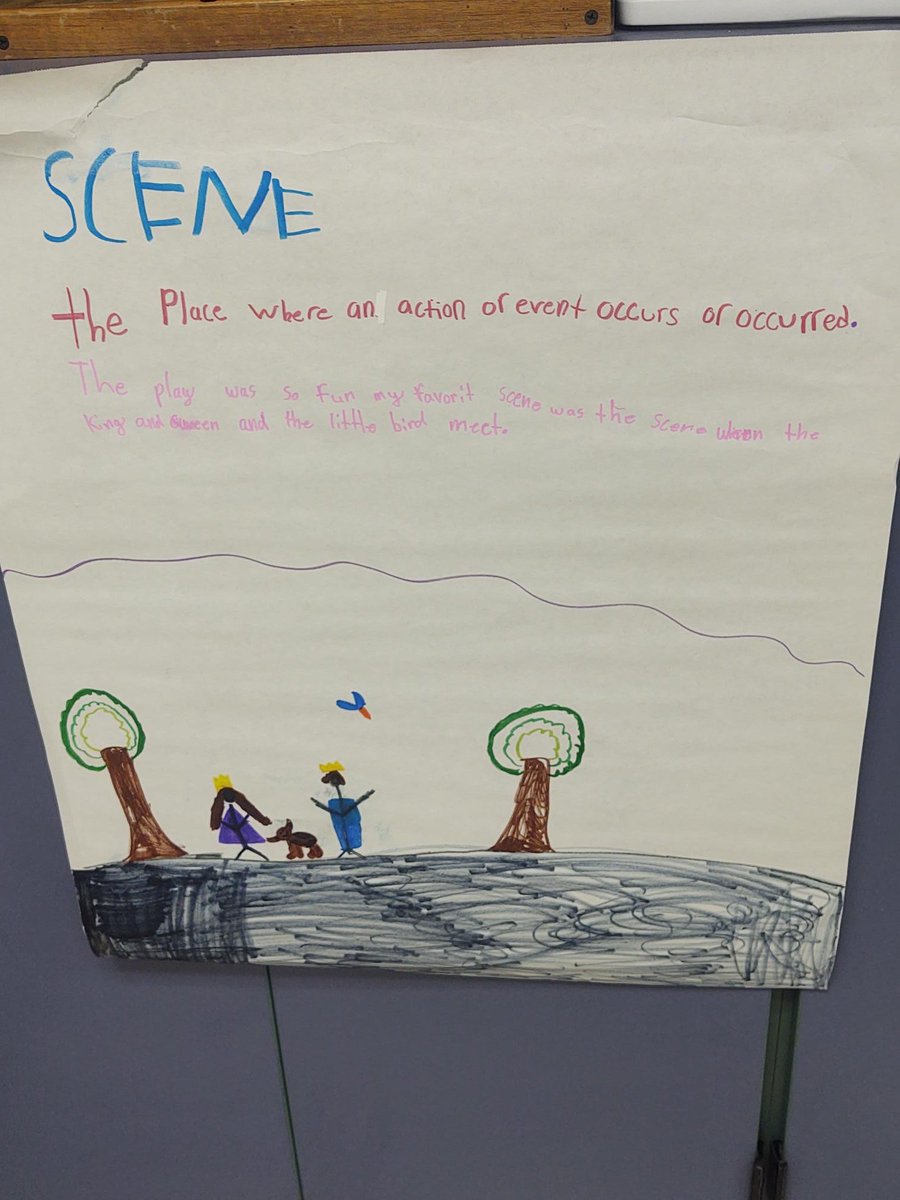 SCENE
the Place where an action or event occurs or occurred.
The play was so fun my favorit scene was the scene when the
King and Queen and the little bird meet.